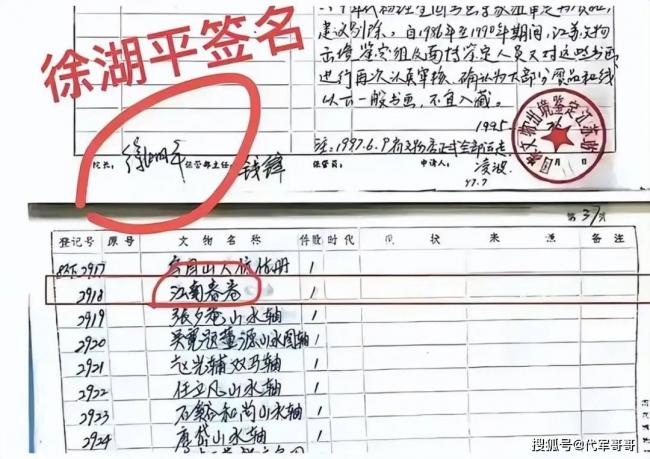 徐湖平签名
建议剔除。自1986年至1990年期间,江苏文物
出境鉴定组及南博鉴定人员又对这些书画
进行再次认真审核,确认为大部分赝品和线
以下一般书画,不宜入藏。
1995
注:1997.6.9
院长:
保管部主任:
钱锋
保管员:
申请人:
凌波
97.7
文物出境鉴定江苏
第37页
登记号 原号 文物名称 件数 时代 现状 来源 备注
2917 1
2918 江南春卷 1
2919 张夕庵山水轴 1
2920 吴觉迟董源山水图轴 1
2921 赵光辅双马轴 1
2922 任立凡山水轴 1
2923 石谿和尚山水轴 1
2924 唐岱山水轴 1
搜狐号@代军哥哥